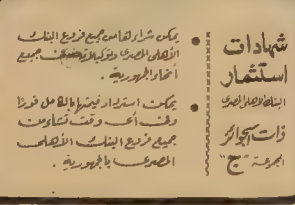 شهادات
استثمار
البنك الأهلى المصرى
ذات الجوائز
المجموعة "ج"
يمكن شراءها من جميع فروع البنك
الأهلى المصرى وتوكيلاته فى جميع
أنحاء الجمهورية .
يمكن استرداد قيمتها بالكامل فورًا
وفى أى وقت تشاء من
جميع فروع البنك الأهلى
المصرى بالجمهورية .